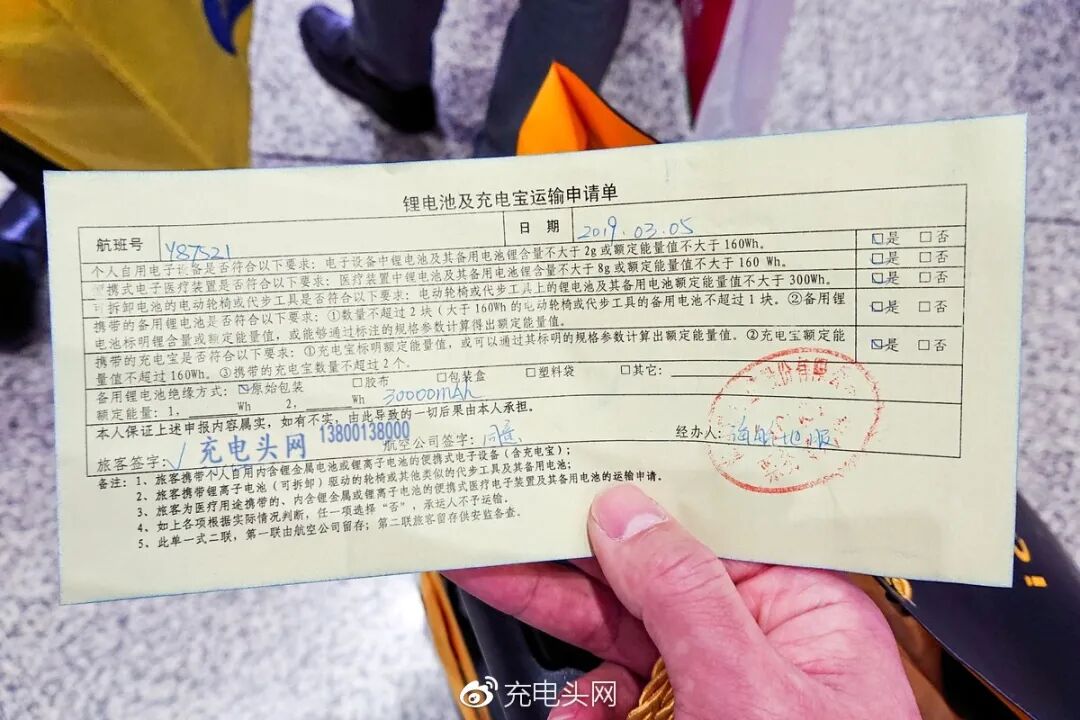 锂电池及充电宝运输申请单
航班号 Y87521 日 期 2019.03.05
个人自用电子设备是否符合以下要求：电子设备中锂电池及其备用电池锂含量不大于2g或额定能量值不大于160Wh。 ☑是 □否
便携式电子医疗装置是否符合以下要求：医疗装置中锂电池及其备用电池锂含量不大于8g或额定能量值不大于160 Wh。 ☑是 □否
可拆卸电池的电动轮椅或代步工具是否符合以下要求：电动轮椅或代步工具上的锂电池及其备用电池额定能量值不大于300Wh。 ☑是 □否
携带的备用锂电池是否符合以下要求：①数量不超过2块（大于160Wh的电动轮椅或代步工具的备用电池不超过1块。②备用锂
电池标明锂含量或额定能量值，或能够通过标注的规格参数计算得出额定能量值。 ☑是 □否
携带的充电宝是否符合以下要求：①充电宝标明额定能量值，或可以通过其标明的规格参数计算出额定能量值。②充电宝额定能
量值不超过160Wh。③携带的充电宝数量不超过2个。 ☑是 □否
备用锂电池绝缘方式：☑原始包装 □胶布 □包装盒 □塑料袋 □其它：
额定能量：1，____Wh 2，____Wh 30000mAh
本人保证上述申报内容属实，如有不实，由此导致的一切后果由本人承担。
旅客签字：√ 充电头网 13800138000 航空公司签字：同意 经办人：
备注：1、旅客携带个人自用内含锂金属电池或锂离子电池的便携式电子设备（含充电宝）；
2、旅客携带锂离子电池（可拆卸）驱动的轮椅或其他类似的代步工具及其备用电池；
3、旅客为医疗用途携带的、内含锂金属或锂离子电池的便携式医疗电子装置及其备用电池的运输申请。
4、如上各项根据实际情况判断，任一项选择“否”，承运人不予运输。
5、此单一式二联，第一联由航空公司留存；第二联旅客留存供安监备查。
充电头网